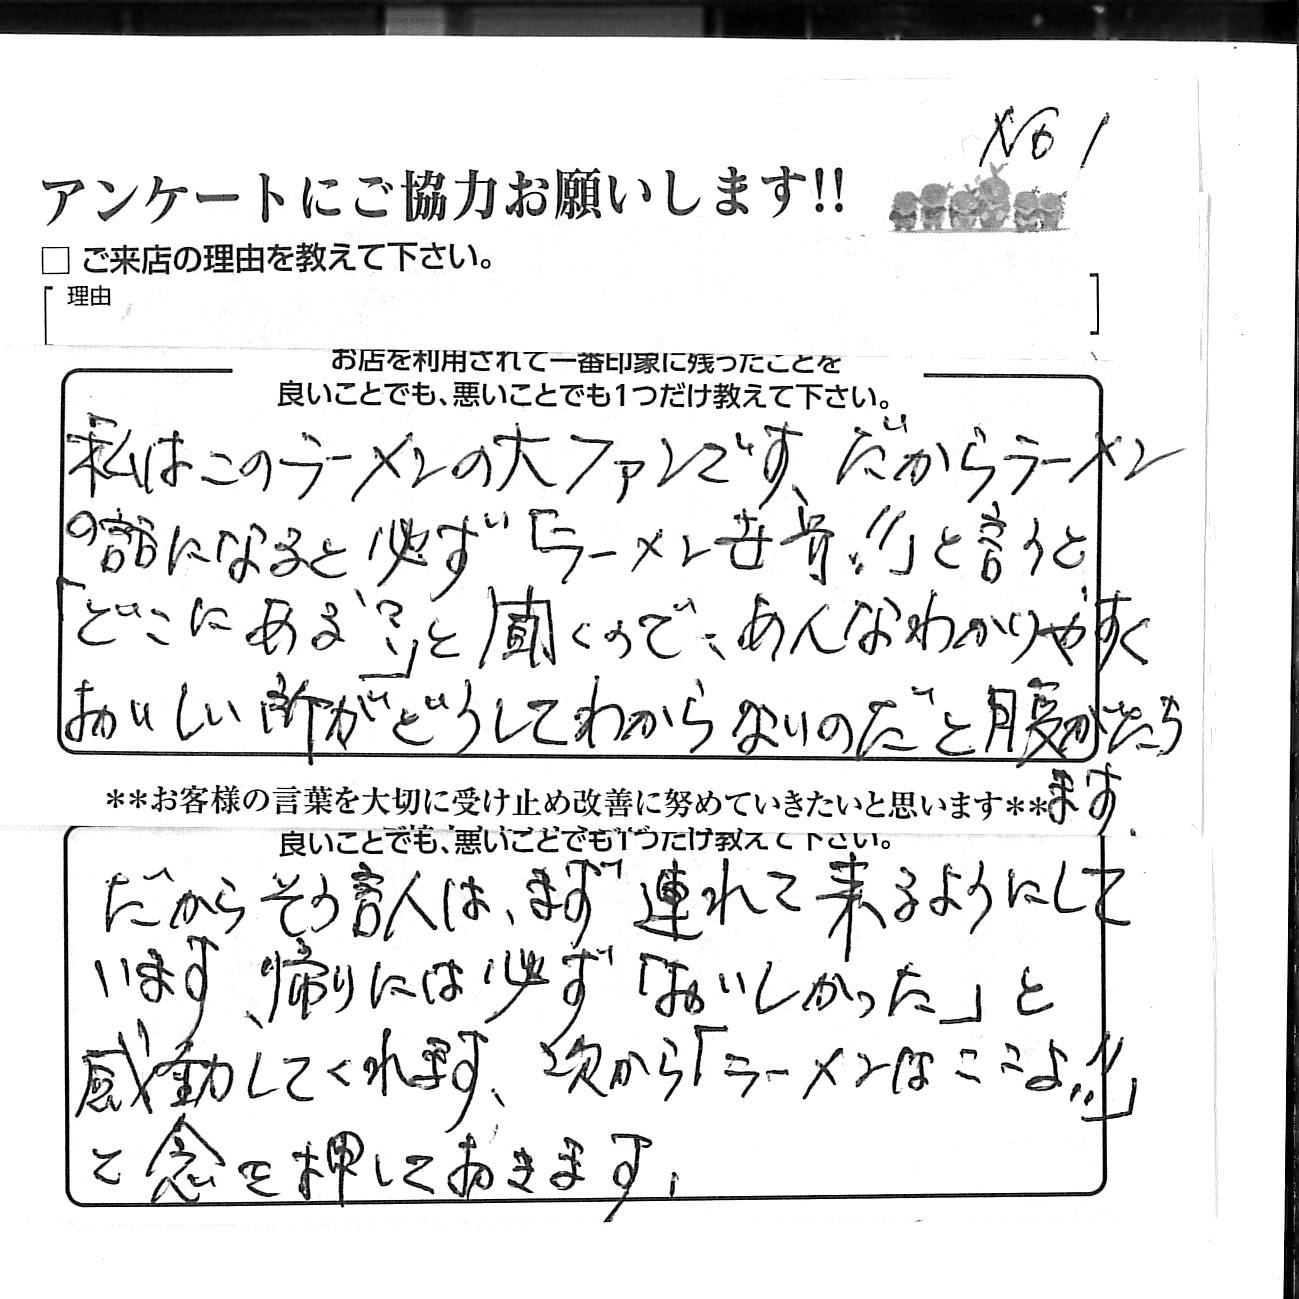 No 1
アンケートにご協力お願いします!!
□ ご来店の理由を教えて下さい。
理由
お店を利用されて一番印象に残ったことを
良いことでも、悪いことでも1つだけ教えて下さい。
私はこのラーメンの大ファンです、だからラーメン
の話になると必ず「ラーメン世界!!」と言うと
「どこにある?」と聞くので、あんなわかりやすく
おいしい所がどうしてわからないのだと腹がたち
ます.
**お客様の言葉を大切に受け止め改善に努めていきたいと思います**
良いことでも、悪いことでも1つだけ教えて下さい。
だからそう言人は、まず連れて来るようにして
います、帰りには必ず「おいしかった」と
感動してくれます、次から「ラーメンはここよ!!」
と念を押しておきます.